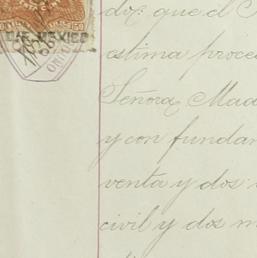 DE MEXICO
dos: que el
estima proce
Señora Mad
y con fundam
venta y dos
civil y dos m